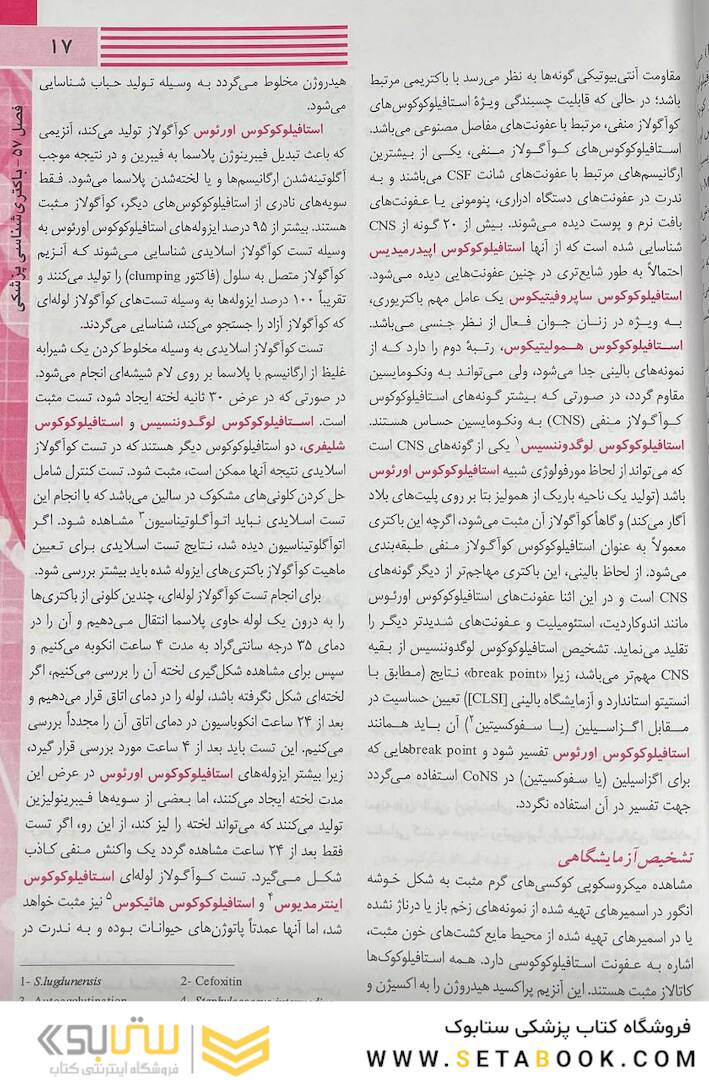 ۱۷
فصل ۵۷ - باکتری‌شناسی پزشکی
مقاومت آنتی‌بیوتیکی گونه‌ها به نظر می‌رسد با باکتریمی مرتبط
باشد؛ در حالی که قابلیت چسبندگی ویژهٔ استافیلوکوکوس‌های
کوآگولاز منفی، مرتبط با عفونت‌های مفاصل مصنوعی می‌باشد.
استافیلوکوکوس‌های کوآگولاز منفی، یکی از بیشترین
ارگانیسم‌های مرتبط با عفونت‌های شانت CSF می‌باشند و به
ندرت در عفونت‌های دستگاه ادراری، پنومونی یا عفونت‌های
بافت نرم و پوست دیده می‌شوند. بیش از ۲۰ گونه از CNS
شناسایی شده است که از آنها استافیلوکوکوس اپیدرمیدیس
احتمالاً به طور شایع‌تری در چنین عفونت‌هایی دیده می‌شود.
استافیلوکوکوس ساپروفیتیکوس یک عامل مهم باکتریوری،
به ویژه در زنان جوان فعال از نظر جنسی می‌باشد.
استافیلوکوکوس همولیتیکوس، رتبهٔ دوم را دارد که از
نمونه‌های بالینی جدا می‌شود، ولی می‌تواند به ونکومایسین
مقاوم گردد، در صورتی که بیشتر گونه‌های استافیلوکوکوس
کوآگولاز منفی (CNS) به ونکومایسین حساس هستند.
استافیلوکوکوس لوگدوننسیس۱ یکی از گونه‌های CNS است
که می‌تواند از لحاظ مورفولوژی شبیه استافیلوکوکوس اورئوس
باشد (تولید یک ناحیه باریک از همولیز بتا بر روی پلیت‌های بلاد
آگار می‌کند) و گاهاً کوآگولاز آن مثبت می‌شود، اگرچه این باکتری
معمولاً به عنوان استافیلوکوکوس کوآگولاز منفی طبقه‌بندی
می‌شود. از لحاظ بالینی، این باکتری مهاجم‌تر از دیگر گونه‌های
CNS است و در این اثنا عفونت‌های استافیلوکوکوس اورئوس
مانند اندوکاردیت، استئومیلیت و عفونت‌های شدیدتر دیگر را
تقلید می‌نماید. تشخیص استافیلوکوکوس لوگدوننسیس از بقیه
CNS مهم‌تر می‌باشد، زیرا «break point» نتایج (مطابق با
انستیتو استاندارد و آزمایشگاه بالینی [CLSI]) تعیین حساسیت در
مقابل اگزاسیلین (یا سفوکسیتین۲) آن باید همانند
استافیلوکوکوس اورئوس تفسیر شود و break pointهایی که
برای اگزاسیلین (یا سفوکسیتین) در CoNS استفاده می‌گردد
جهت تفسیر در آن استفاده نگردد.
تشخیص آزمایشگاهی
مشاهده میکروسکوپی کوکسی‌های گرم مثبت به شکل خوشه
انگور در اسمیرهای تهیه شده از نمونه‌های زخم باز یا درناژ نشده
یا در اسمیرهای تهیه شده از محیط مایع کشت‌های خون مثبت،
اشاره به عفونت استافیلوکوکوسی دارد. همه استافیلوکوک‌ها
کاتالاز مثبت هستند. این آنزیم پراکسید هیدروژن را به اکسیژن و
هیدروژن مخلوط می‌گردد به وسیله تولید حباب شناسایی
می‌شود.
استافیلوکوکوس اورئوس کوآگولاز تولید می‌کند، آنزیمی
که باعث تبدیل فیبرینوژن پلاسما به فیبرین و در نتیجه موجب
آگلوتینه‌شدن ارگانیسم‌ها و یا لخته‌شدن پلاسما می‌شود. فقط
سویه‌های نادری از استافیلوکوکوس‌های دیگر، کوآگولاز مثبت
هستند. بیشتر از ۹۵ درصد ایزوله‌های استافیلوکوکوس اورئوس به
وسیله تست کوآگولاز اسلایدی شناسایی می‌شوند که آنزیم
کوآگولاز متصل به سلول (فاکتور clumping) را تولید می‌کنند و
تقریباً ۱۰۰ درصد ایزوله‌ها به وسیله تست‌های کوآگولاز لوله‌ای
که کوآگولاز آزاد را جستجو می‌کند، شناسایی می‌گردند.
تست کوآگولاز اسلایدی به وسیله مخلوط کردن یک شیرابه
غلیظ از ارگانیسم با پلاسما بر روی لام شیشه‌ای انجام می‌شود.
در صورتی که در عرض ۳۰ ثانیه لخته ایجاد شود، تست مثبت
است. استافیلوکوکوس لوگدوننسیس و استافیلوکوکوس
شلیفری، دو استافیلوکوکوس دیگر هستند که در تست کوآگولاز
اسلایدی نتیجه آنها ممکن است، مثبت شود. تست کنترل شامل
حل کردن کلونی‌های مشکوک در سالین می‌باشد که با انجام این
تست اسلایدی نباید اتوآگلوتیناسیون۳ مشاهده شود. اگر
اتوآگلوتیناسیون دیده شد، نتایج تست اسلایدی برای تعیین
ماهیت کوآگولاز باکتری‌های ایزوله شده باید بیشتر بررسی شود.
برای انجام تست کوآگولاز لوله‌ای، چندین کلونی از باکتری‌ها
را به درون یک لوله حاوی پلاسما انتقال می‌دهیم و آن را در
دمای ۳۵ درجه سانتی‌گراد به مدت ۴ ساعت انکوبه می‌کنیم و
سپس برای مشاهده شکل‌گیری لخته آن را بررسی می‌کنیم، اگر
لخته‌ای شکل نگرفته باشد، لوله را در دمای اتاق قرار می‌دهیم و
بعد از ۲۴ ساعت انکوباسیون در دمای اتاق آن را مجدداً بررسی
می‌کنیم. این تست باید بعد از ۴ ساعت مورد بررسی قرار گیرد،
زیرا بیشتر ایزوله‌های استافیلوکوکوس اورئوس در عرض این
مدت لخته ایجاد می‌کنند، اما بعضی از سویه‌ها فیبرینولیزین
تولید می‌کنند که می‌تواند لخته را لیز کند، از این رو، اگر تست
فقط بعد از ۲۴ ساعت مشاهده گردد یک واکنش منفی کاذب
شکل می‌گیرد. تست کوآگولاز لوله‌ای استافیلوکوکوس
اینترمدیوس۴ و استافیلوکوکوس هائیکوس۵ نیز مثبت خواهد
شد، اما آنها عمدتاً پاتوژن‌های حیوانات بوده و به ندرت در
1- S.lugdunensis 2- Cefoxitin
3- Autoagglutination 4- Staphylococcus intermedius
فروشگاه کتاب پزشکی ستابوک
WWW.SETABOOK.COM
ستابوک
فروشگاه اینترنتی کتاب